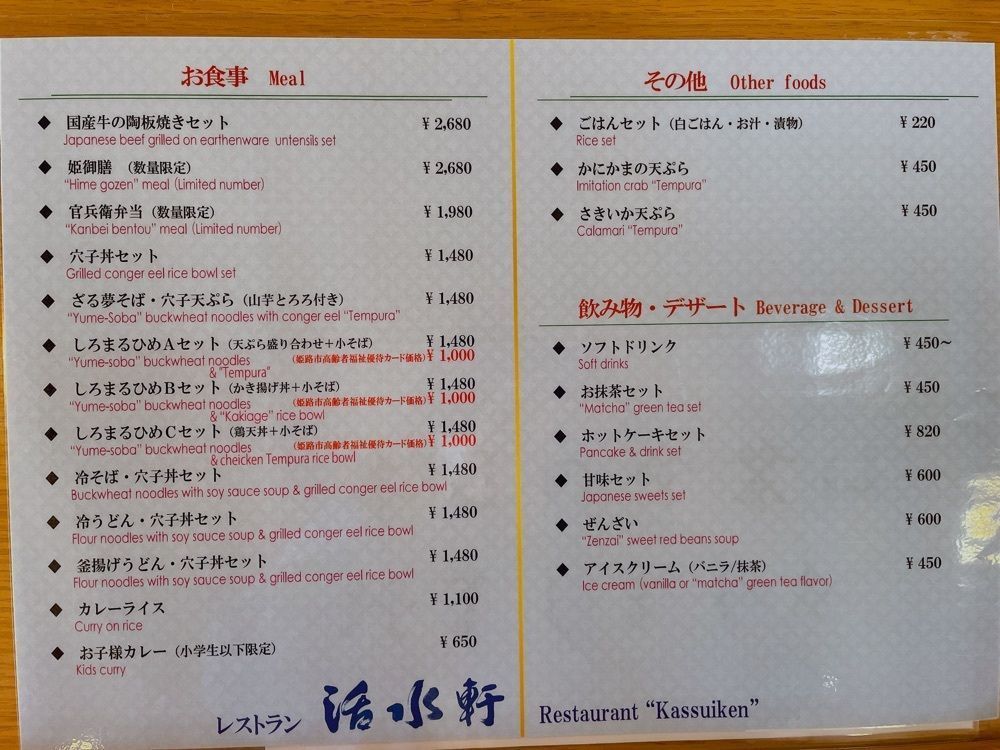 お食事 Meal
◆ 国産牛の陶板焼きセット ¥ 2,680
Japanese beef grilled on earthenware untensils set
◆ 姫御膳 （数量限定） ¥ 2,680
"Hime gozen" meal (Limited number)
◆ 官兵衛弁当（数量限定） ¥ 1,980
"Kanbei bentou" meal (Limited number)
◆ 穴子丼セット ¥ 1,480
Grilled conger eel rice bowl set
◆ ざる夢そば・穴子天ぷら（山芋とろろ付き） ¥ 1,480
"Yume-Soba" buckwheat noodles with conger eel "Tempura"
◆ しろまるひめAセット（天ぷら盛り合わせ＋小そば） ¥ 1,480
"Yume-soba" buckwheat noodles （姫路市高齢者福祉優待カード価格）¥ 1,000
& "Tempura"
◆ しろまるひめBセット（かき揚げ丼＋小そば） ¥ 1,480
"Yume-soba" buckwheat noodles （姫路市高齢者福祉優待カード価格）¥ 1,000
& "Kakiage" rice bowl
◆ しろまるひめCセット（鶏天丼＋小そば） ¥ 1,480
"Yume-soba" buckwheat noodles （姫路市高齢者福祉優待カード価格）¥ 1,000
& cheicken Tempura rice bowl
◆ 冷そば・穴子丼セット ¥ 1,480
Buckwheat noodles with soy sauce soup & grilled conger eel rice bowl
◆ 冷うどん・穴子丼セット ¥ 1,480
Flour noodles with soy sauce soup & grilled conger eel rice bowl
◆ 釜揚げうどん・穴子丼セット ¥ 1,480
Flour noodles with soy sauce soup & grilled conger eel rice bowl
◆ カレーライス ¥ 1,100
Curry on rice
◆ お子様カレー（小学生以下限定） ¥ 650
Kids curry
レストラン 活水軒
その他 Other foods
◆ ごはんセット（白ごはん・お汁・漬物） ¥ 220
Rice set
◆ かにかまの天ぷら ¥ 450
Imitation crab "Tempura"
◆ さきいか天ぷら ¥ 450
Calamari "Tempura"
飲み物・デザート Beverage & Dessert
◆ ソフトドリンク ¥ 450〜
Soft drinks
◆ お抹茶セット ¥ 450
"Matcha" green tea set
◆ ホットケーキセット ¥ 820
Pancake & drink set
◆ 甘味セット ¥ 600
Japanese sweets set
◆ ぜんざい ¥ 600
"Zenzai" sweet red beans soup
◆ アイスクリーム（バニラ/抹茶） ¥ 450
Ice cream (vanilla or "matcha" green tea flavor)
Restaurant "Kassuiken"